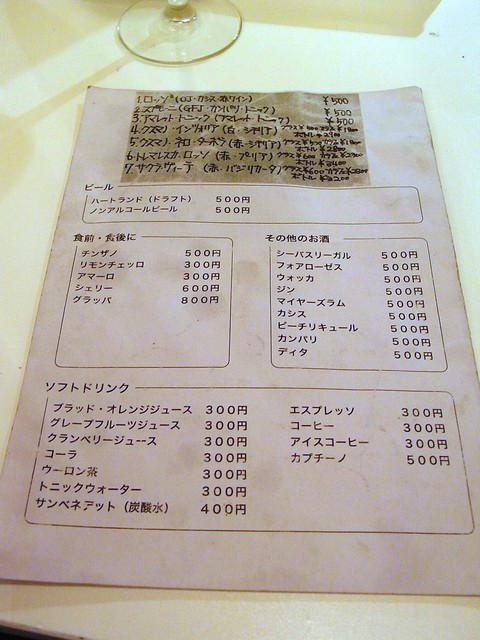 1.ロッソ(OJ・カシス・赤ワイン) ¥500
2.スプモーニ(GFJ・カンパリ・トニック) ¥500
3.アマレット・トニック(アマレット・トニック) ¥500
4.クズマノ・インツォリア(白・シチリア)
5.クズマノ・ネロ・ダーボラ(赤・シチリア) ボトル¥2800
6.トルマレスカ・ロッソ(赤・プーリア) グラス¥600 ボトル¥3400
7.サクラヴィーテ(赤・バジリカータ) グラス¥600 ボトル¥3200
ビール
ハートランド (ドラフト) 500円
ノンアルコールビール 500円
食前・食後に
チンザノ 500円
リモンチェッロ 300円
アマーロ 300円
シェリー 600円
グラッパ 800円
その他のお酒
シーバスリーガル 500円
フォアローゼス 500円
ウォッカ 500円
ジン 500円
マイヤーズラム 500円
カシス 500円
ピーチリキュール 500円
カンパリ 500円
ディタ 500円
ソフトドリンク
ブラッド・オレンジジュース 300円
グレープフルーツジュース 300円
クランベリージュース 300円
コーラ 300円
ウーロン茶 300円
トニックウォーター 300円
サンベネデット (炭酸水) 400円
エスプレッソ 300円
コーヒー 300円
アイスコーヒー 300円
カプチーノ 500円